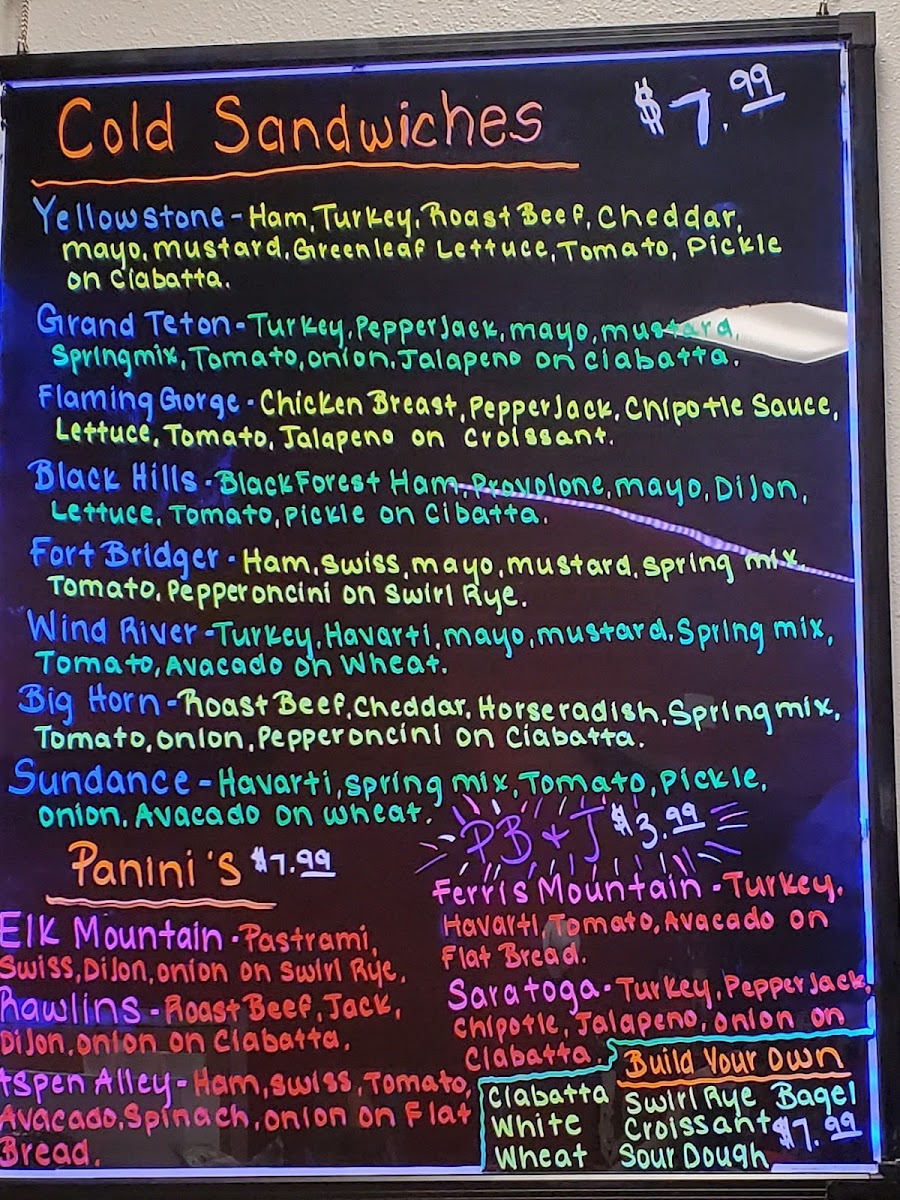 Cold Sandwiches $7.99
Yellowstone - Ham, Turkey, Roast Beef, Cheddar,
mayo, mustard, Greenleaf Lettuce, Tomato, Pickle
on Ciabatta.
Grand Teton - Turkey, Pepper Jack, mayo, mustard,
Springmix, Tomato, onion, Jalapeno on Ciabatta.
Flaming Gorge - Chicken Breast, Pepper Jack, Chipotle Sauce,
Lettuce, Tomato, Jalapeno on Croissant.
Black Hills - Black Forest Ham, Provolone, mayo, Dijon,
Lettuce, Tomato, Pickle on Cibatta.
Fort Bridger - Ham, Swiss, mayo, mustard, spring mix,
Tomato, Pepperoncini on Swirl Rye.
Wind River - Turkey, Havarti, mayo, mustard, Spring mix,
Tomato, Avacado on Wheat.
Big Horn - Roast Beef, Cheddar, Horseradish, Spring mix,
Tomato, onion, Pepperoncini on Ciabatta.
Sundance - Havarti, spring mix, Tomato, Pickle,
onion, Avacado on wheat.
PB & J $3.99
Panini's $7.99
Elk Mountain - Pastrami,
Swiss, Dijon, onion on Swirl Rye.
Rawlins - Roast Beef, Jack,
Dijon, onion on Ciabatta.
Aspen Alley - Ham, Swiss, Tomato,
Avacado, Spinach, onion on Flat
Bread.
Ferris Mountain - Turkey,
Havarti, Tomato, Avacado on
Flat Bread.
Saratoga - Turkey, Pepper Jack,
Chipotle, Jalapeno, onion on
Ciabatta.
Build Your Own
Ciabatta Swirl Rye Bagel
White Croissant $7.99
Wheat Sour Dough